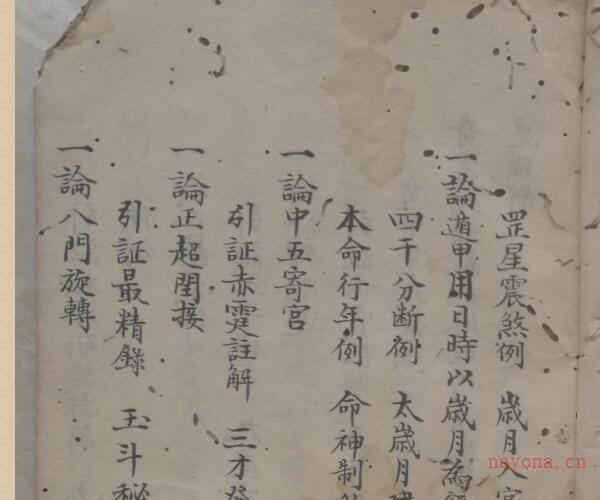 罡星震煞例 歲月入宮
一論遁甲用日時以歲月為
四干分断例 太歲月建
本命行年例 命神制
一論中五寄宮
引証赤霆註解 三才發
一論正超閏接
引証最精錄 玉斗秘
一論八門旋轉
nayona.cn